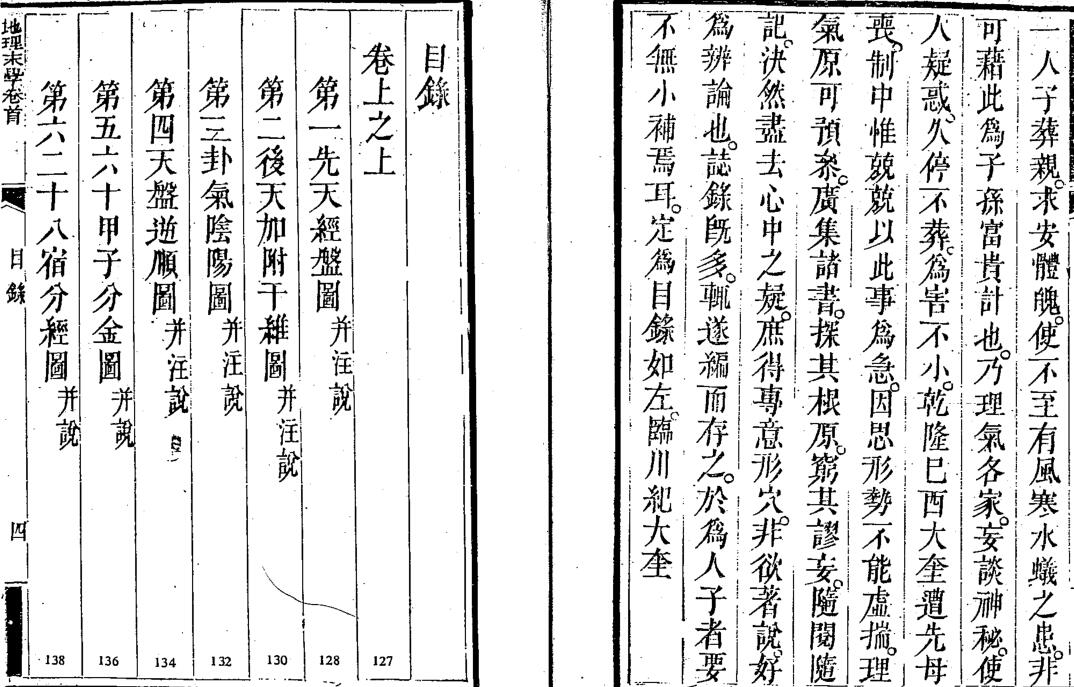 一人子葬親。求安體魄。使不至有風寒水蟻之患。非
可藉此爲子孫富貴計也。乃理氣各家。妄談神秘。使
人疑惑。久停不葬。爲害不小。乾隆巳酉大奎遭先母
喪。制中惟兢兢以此事爲急。因思形勢不能虛揣。理
氣原可預叅。廣集諸書。探其根原。窮其謬妄。隨閱隨
記。決然盡去心中之疑。庶得專意形穴。非欲著說。好
爲辨論也。誌錄旣多。輒遂編而存之。於爲人子者。要
不無小補焉耳。定爲目錄如左。臨川紀大奎
目錄
卷上之上 127
第一先天經盤圖 并注說 128
第二後天加附干維圖 并注說 130
第三卦氣陰陽圖 并注說 132
第四天盤逆順圖 并注說 134
第五六十甲子分金圖 并說 136
第六二十八宿分經圖 并說 138
地理末學卷首 目錄 四